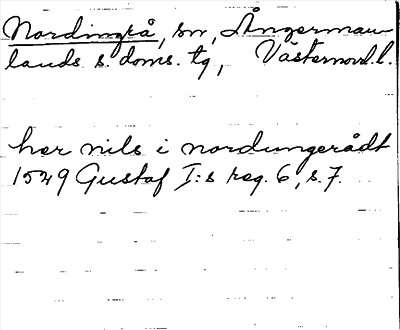 Nordingrå, sn, Ångerman-
lands s. doms. tg, Västernorrl. l.
her nils i nordungerådt
1529 Gustaf I:s reg. 6, s. 7.